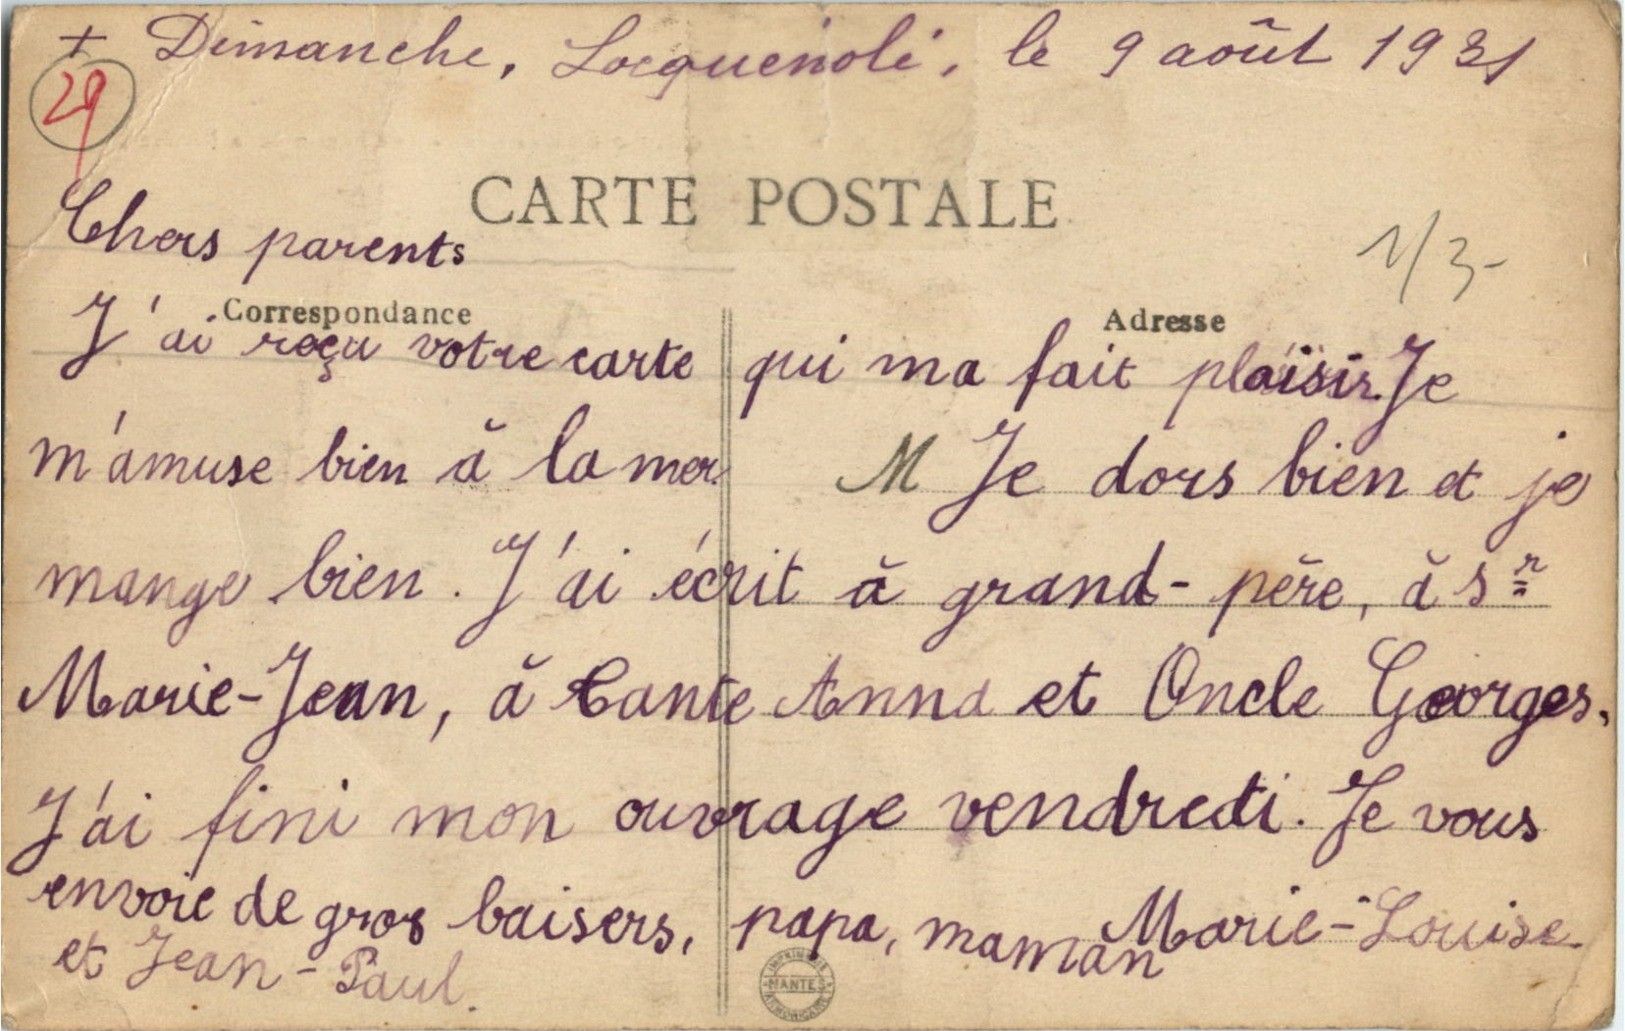 + Dimanche, Locquénolé, le 9 août 1931
29
CARTE POSTALE
Chers parents
1/3-
Correspondance
Adresse
J'ai reçu votre carte qui ma fait plaisir. Je
m'amuse bien à la mer. M Je dors bien et je
mange bien. J'ai écrit à grand-père, à Sr
Marie-Jean, à Tante Anna et Oncle Georges.
J'ai fini mon ouvrage vendredi. Je vous
envoie de gros baisers, papa, maman
et Jean-Paul.
Marie-Louise.
IMPRIMERIE
NANTES
ARMORICAINE